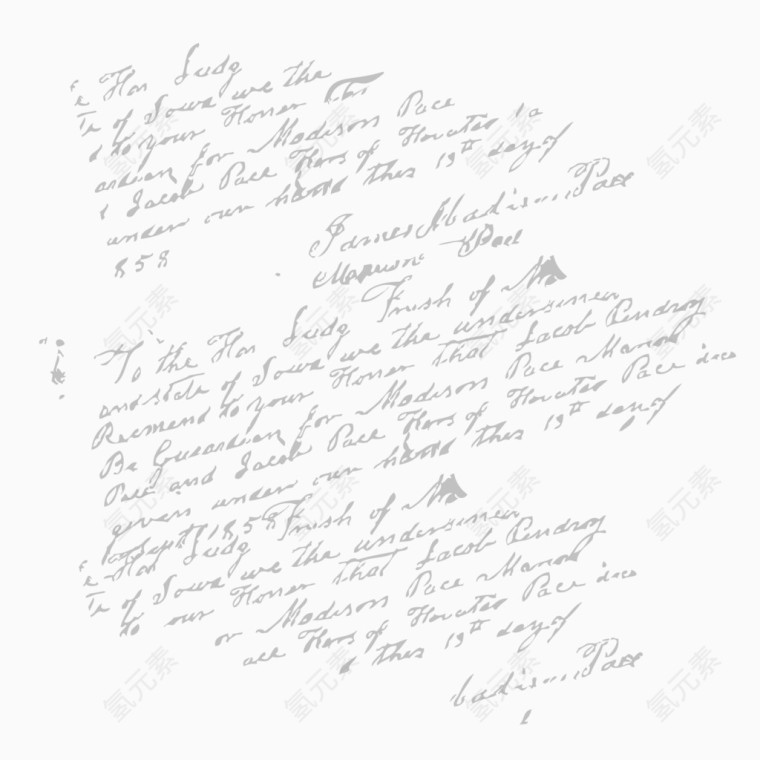 e Hon Judg
Te of Iowa we the
to your Honer that
ardian for Madison Pace
Jacob Pace Hars of Horatio
under our hand this 13th day of
858
James Madison Pace
Pace
To the Hon Judg Frush of
and state of Iowa we the undersinen
Recmend to your Honer that Jacob Pendroy
Be Guardian for Madison Pace Marion
Pace and Jacob Pace Hars of Horatio Pace dece
given under our hand this 13th day of
Sept 1858 Frush of
e Hon Judg
Te of Iowa we the undersinen
to our Honer that Jacob Pendroy
or Madison Pace Marion
ace Hars of Horatio Pace dece
this 13th day of
adison Pace
氢元素